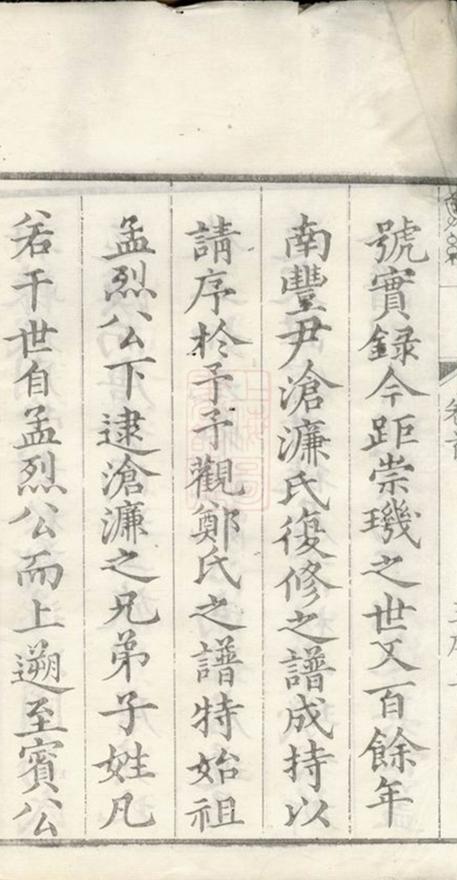 號實録今距崇璣之世又百餘年
南豐尹滄濂氏復修之譜成持以
請序於予予觀鄭氏之譜特始祖
孟烈公下逮滄濂之兄弟子姓凡
若干世自孟烈公而上遡至賓公